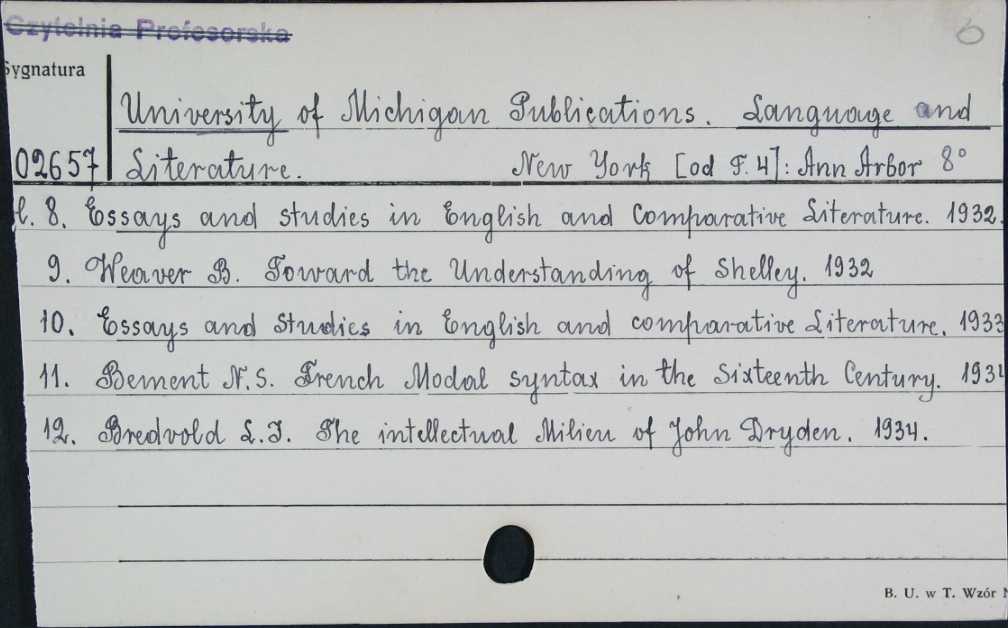 Czytelnia Profesorska
6
Sygnatura
University of Michigan Publications. Language and
02657 Literature. New York [od T. 4]: Ann Arbor 8°
t. 8. Essays and studies in English and Comparative Literature. 1932.
9. Weaver B. Toward the Understanding of Shelley. 1932
10. Essays and Studies in English and comparative Literature. 1933
11. Bement N. S. French Modal syntax in the Sixteenth Century. 1934
12. Bredvold L. I. The intellectual Milieu of John Dryden. 1934.
B. U. w T. Wzór